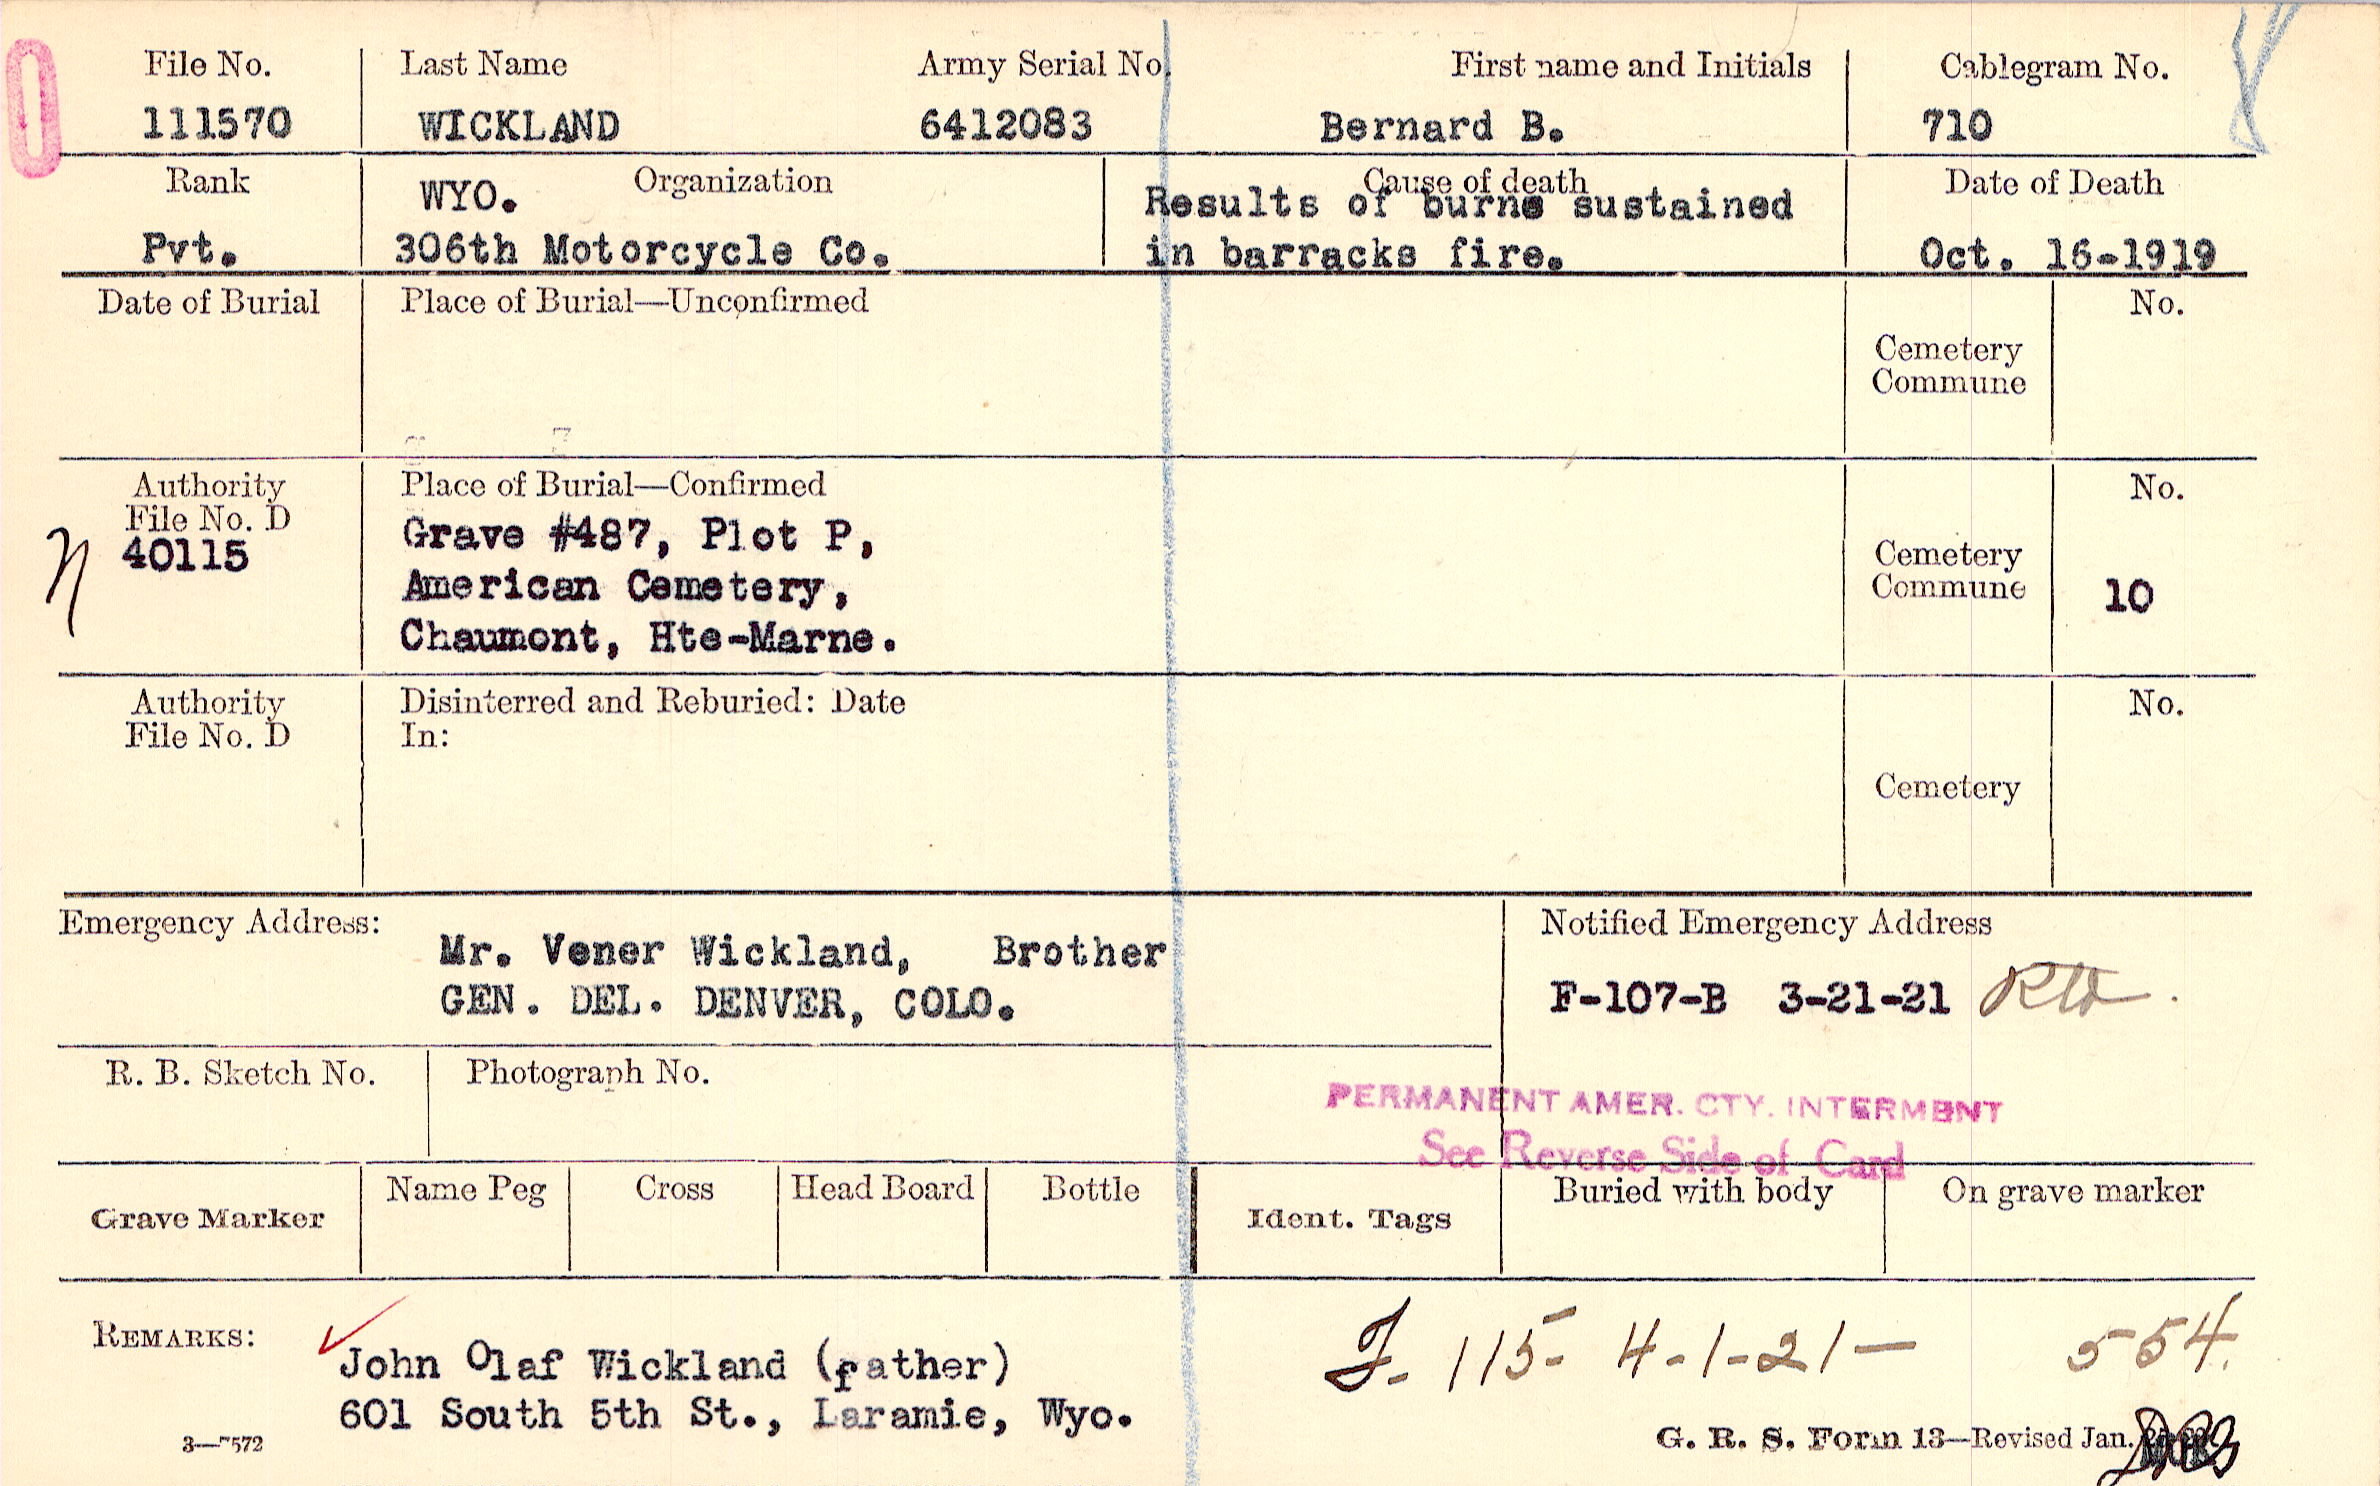 File No. Last Name Army Serial No. First name and Initials Cablegram No.
111570 WICKLAND 6412083 Bernard B. 710
Rank WYO. Organization Cause of death Date of Death
Results of burns sustained
Pvt. 306th Motorcycle Co. in barracks fire. Oct. 16-1919
Date of Burial Place of Burial—Unconfirmed No.
Cemetery
Commune
Authority Place of Burial—Confirmed No.
File No. D
40115 Grave #487, Plot P,
American Cemetery,
Chaumont, Hte-Marne.
Cemetery
Commune 10
Authority Disinterred and Reburied: Date No.
File No. D In:
Cemetery
Emergency Address: Notified Emergency Address
Mr. Vener Wickland, Brother
GEN. DEL. DENVER, COLO. F-107-B 3-21-21
R. B. Sketch No. Photograph No.
PERMANENT AMER. CTY. INTERMENT
See Reverse Side of Card
Grave Marker Name Peg Cross Head Board Bottle Ident. Tags Buried with body On grave marker
REMARKS: John Olaf Wickland (father) F. 115- 4-1-21- 554.
601 South 5th St., Laramie, Wyo.
3—7572 G. R. S. Form 13—Revised Jan.